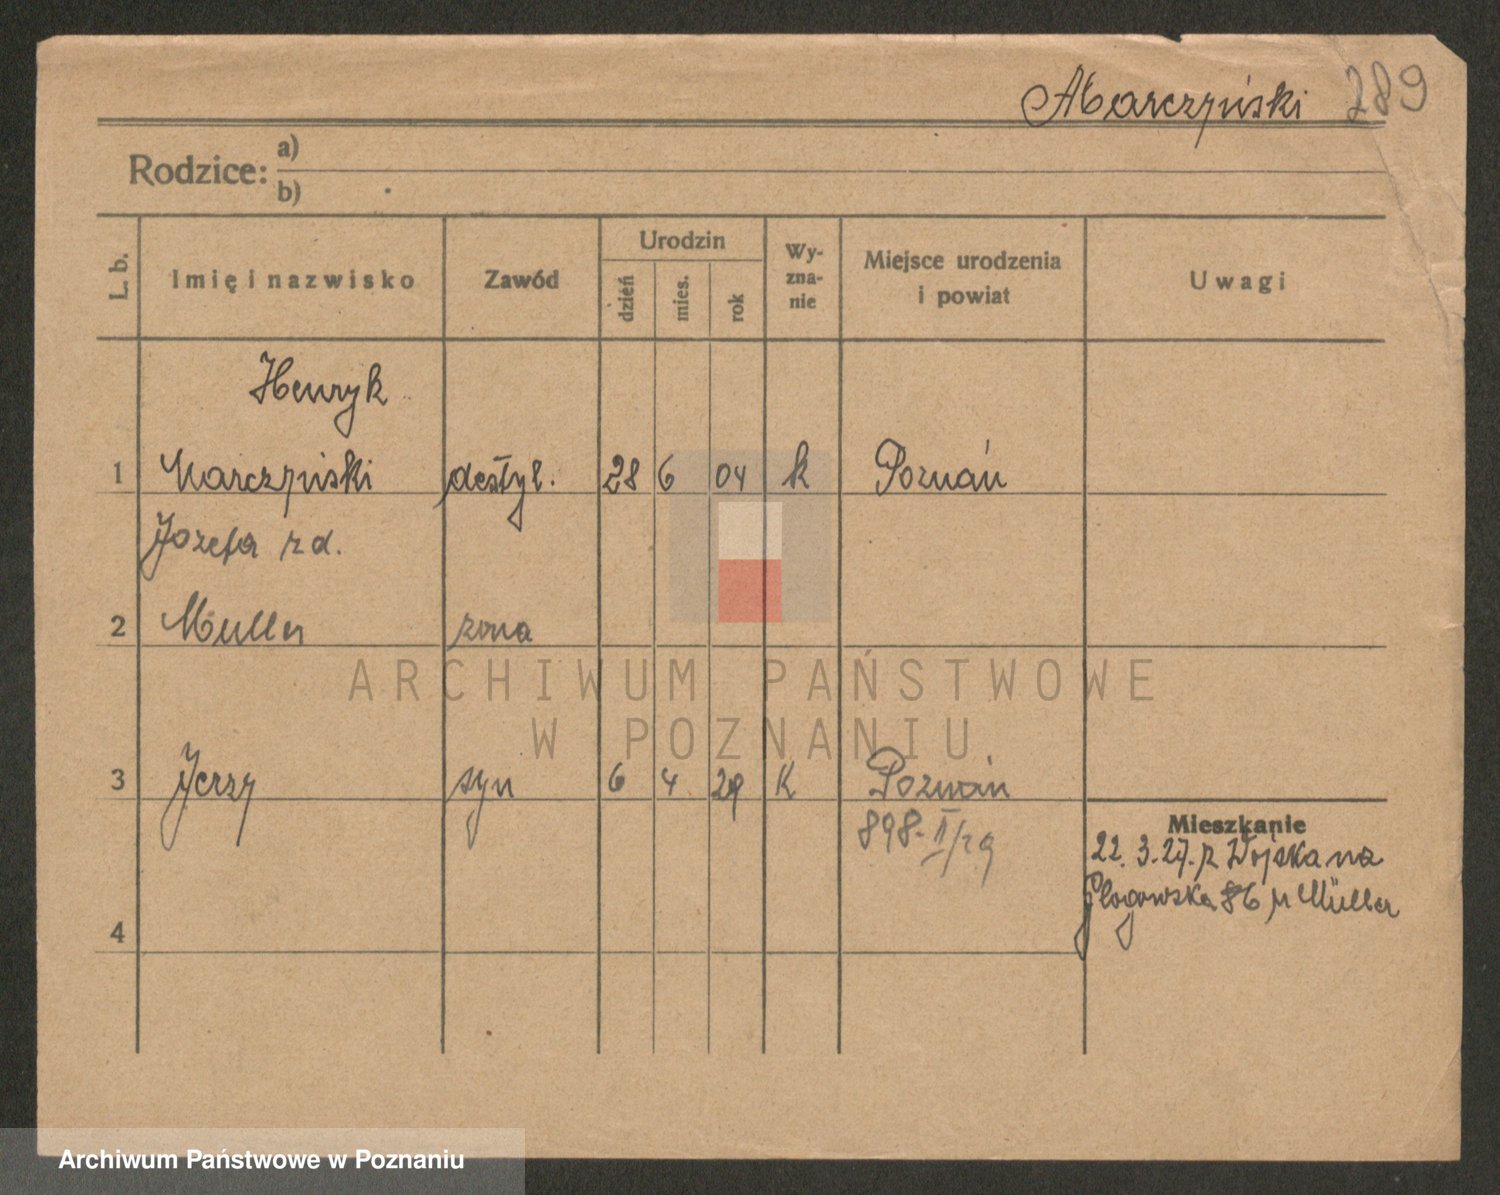 Marczyński 289
Rodzice: a)
b)
L. b.
Imię i nazwisko
Zawód
Urodzin
dzień mies. rok
Wy-
zna-
nie
Miejsce urodzenia
i powiat
Uwagi
Henryk
1 Marczyński destyl. 28 6 04 k Poznań
Józefa z d.
2 Muller żona
ARCHIWUM PAŃSTWOWE
W POZNANIU
3 Jerzy syn 6 4 29 K Poznań
898. II/29
Mieszkanie
22. 3. 27. z Wojska na
Głogowska 86 u Müller
4
Archiwum Państwowe w Poznaniu